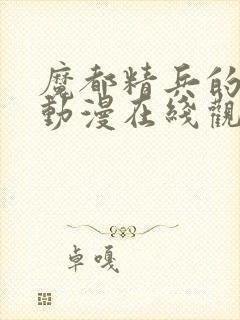 魔都精兵的
動漫在綫觀
卓嘎